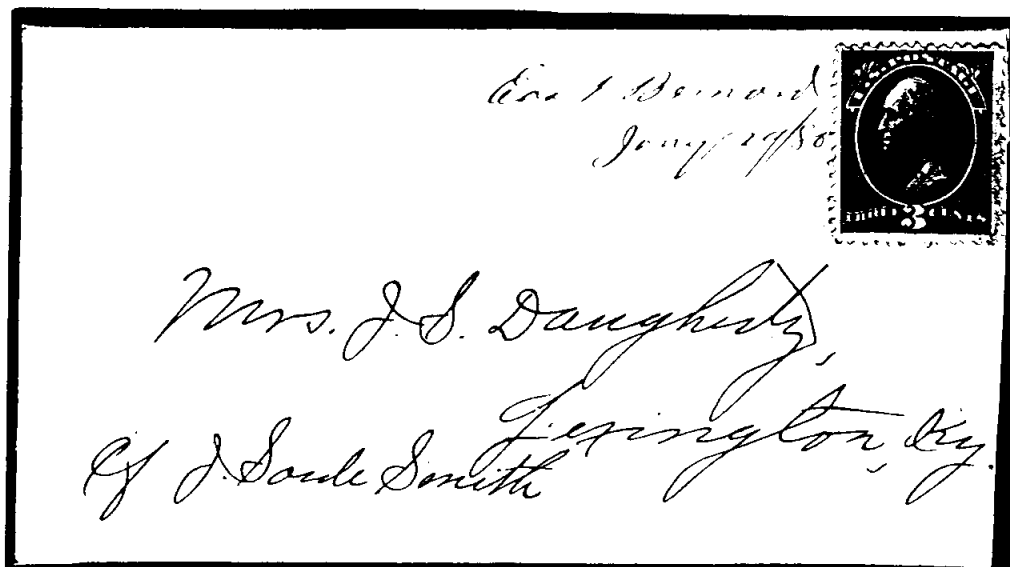 Bernard
Jany 29/80
U.S. POSTAGE
THREE 3 CENTS
Mrs. J. S. Daugherty,
Lexington, Ky.
c/ J. Soule Smith